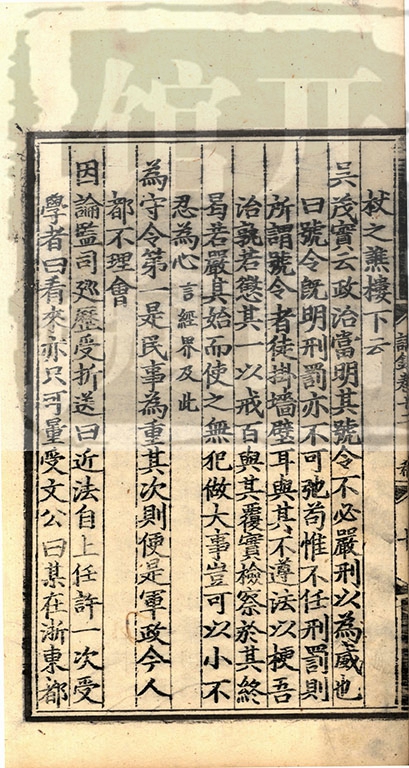 杖之譙樓下云
吳茂實云政治當明其號令不必嚴刑以為威也
曰號令既明刑罰亦不可弛苟惟不任刑罰則
所謂號令者徒掛墻壁耳與其不遵法以梗吾
治孰若懲其一以戒百與其覆實檢察於其終
曷若嚴其始而使之無犯做大事豈可以小不
忍為心言經界及此
為守令第一是民事為重其次則便是軍政今人
都不理會
因論監司廵歷受折送曰近法自上任許一次受
學者曰看來亦只可量受文公曰某在浙東都